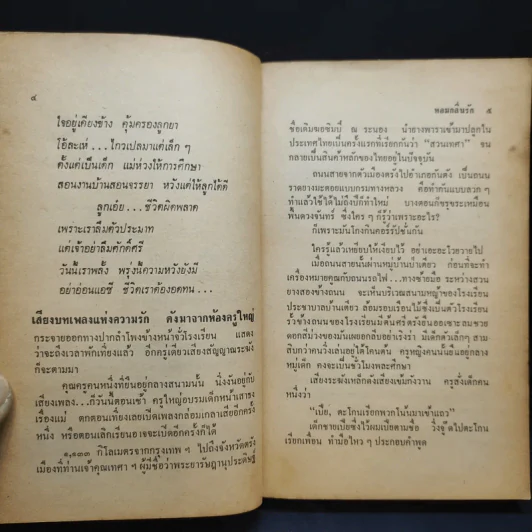 ๔
ใจอยู่เคียงข้าง คุ้มครองลูกยา
โอ้ละเห่...ไกวเปลมาแต่เล็ก ๆ
ตั้งแต่เป็นเด็ก แม่ห่วงให้การศึกษา
สอนงานบ้านสอนจรรยา หวังแต่ให้ลูกได้ดี
ลูกเอ๋ย...ชีวิตผิดพลาด
เพราะเราลืมตัวประมาท
แต่เจ้าอย่าลืมศักดิ์ศรี
วันนี้เราพลั้ง พรุ่งนี้ความหวังยังมี
อย่าอ่อนแอซี ชีวิตเราต้องอดทน...
เสียงบทเพลงแห่งความรัก ดังมาจากห้องครูใหญ่
กระจายออกทางปากลำโพงข้างหน้าจั่วโรงเรียน แสดง
ว่าจะถึงเวลาพักเที่ยงแล้ว อีกครู่เดียวเสียงสัญญาณระฆัง
ก็จะตามมา
คุณครูคนหนึ่งที่ยืนอยู่กลางสนามนั้น นิ่งงันอยู่กับ
เสียงเพลง...ก็วันนี้ตอนเช้า ครูใหญ่อบรมเด็กหน้าเสาธง
เรื่องแม่ ตกตอนเที่ยงเลยเปิดเพลงกล่อมเกลาเสียอีกครั้ง
หนึ่ง หรือตอนเลิกเรียนอาจจะเปิดอีกครั้งก็ได้
๑,๑๓๓ กิโลเมตรจากกรุงเทพ ฯ ไปถึงจังหวัดตรัง
เมืองที่ท่านเจ้าคุณเทศา ฯ ผู้มีชื่อว่าพระยารัษฎานุประดิษฐ์
หอมกลิ่นรัก ๕
ชื่อเดิมคอซิมบี้ ณ ระนอง นำยางพาราเข้ามาปลูกใน
ประเทศไทยเป็นครั้งแรกที่เรียกกันว่า "สวนเทศา" จน
กลายเป็นสินค้าหลักของไทยอยู่ในปัจจุบัน
ถนนสายจากตัวเมืองตรังไปอำเภอกันตัง เป็นถนน
ราดยางมะตอยแบบกรมทางหลวง คือทำกันแบบลวก ๆ
ทำแล้วใช้ได้ไม่ถึงปีก็ทำใหม่ บางตอนก็ขรุขระเหมือน
พื้นดวงจันทร์ ซึ่งใคร ๆ ก็รู้ว่าเพราะอะไร?
ก็เพราะมันโกงกินคอร์รัปชั่นกัน
ใครรู้แล้วเหยียบให้เงียบไว้ อย่าเอะอะโวยวายไป
เมื่อถนนสายนั้นผ่านหมู่บ้านบ่าเตียว ก่อนที่จะทำ
เครื่องหมายคูณกับถนนรถไฟ...ทางซ้ายมือ ระหว่างสวน
ยางสองข้างถนน จะเห็นบริเวณสนามหญ้าของโรงเรียน
ประชาบาลบ้านเตียว ล้อมรอบเรือนไม้ซึ่งเป็นตัวโรงเรียน
รั้วข้างถนนของโรงเรียนมีต้นศรีตรังยืนเอาเซาะลมอวย
ดอกสีม่วงของมันเผยอกลีบอย่างเริงร่า มีเด็กตัวเล็กๆ สาม
สิบกว่าคนวิ่งเล่นอยู่ใต้โคนต้น ครูหญิงคนนั้นยืนอยู่กลาง
หมู่เด็ก คงจะเป็นชั่วโมงพละศึกษา
เสียงระฆังเหล็กดังเสียงเข้มกังวาน ครูสั่งเด็กคน
หนึ่งว่า
"เบีย, ตะโกนเรียกพวกในนั้นมาเข้าแล้ว"
เด็กชายเบียซึ่งไว้ผมเปียตามชื่อ วิ่งจู๊ดไปตะโกน
เรียกเพื่อน ทำมือไหว ๆ ประกอบคำพูด